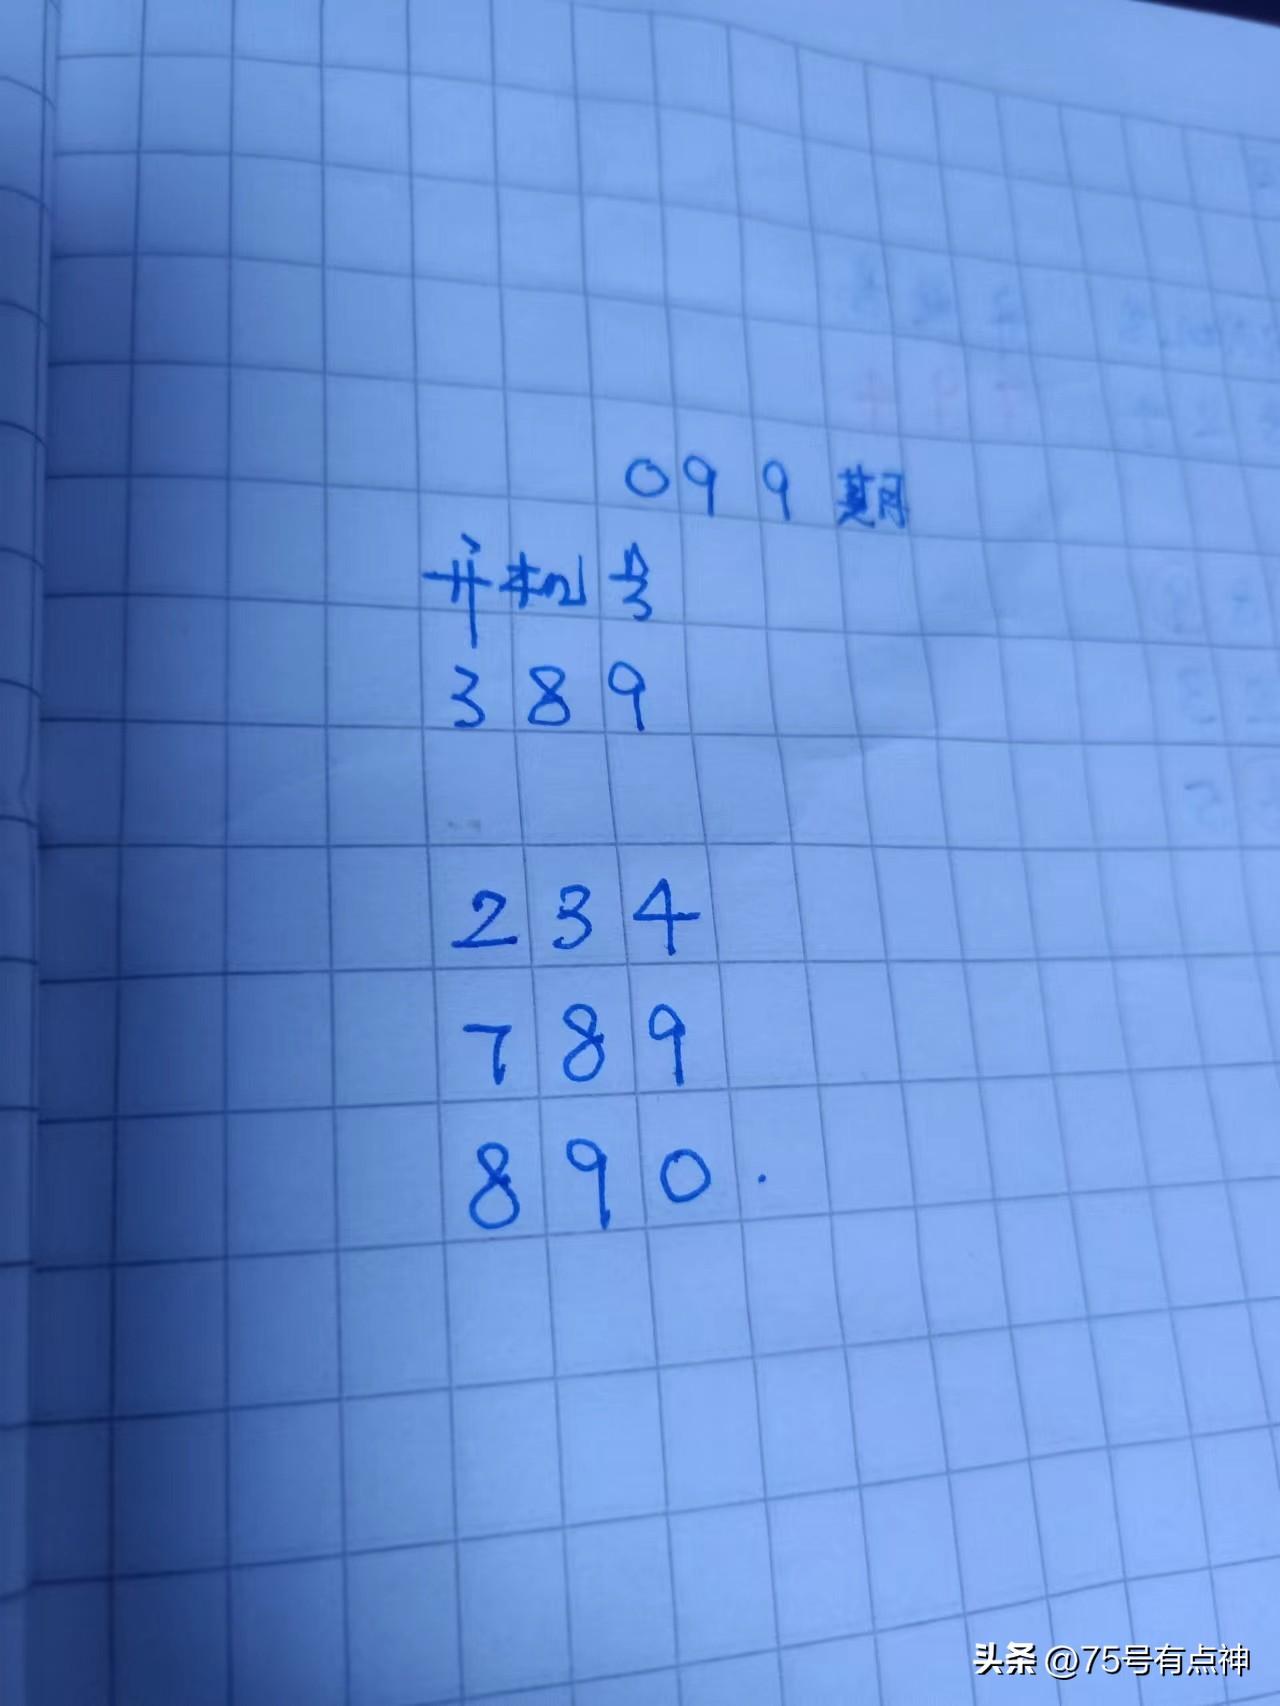 099期
开机号
389
234
789
890.
头条 @75号有点神